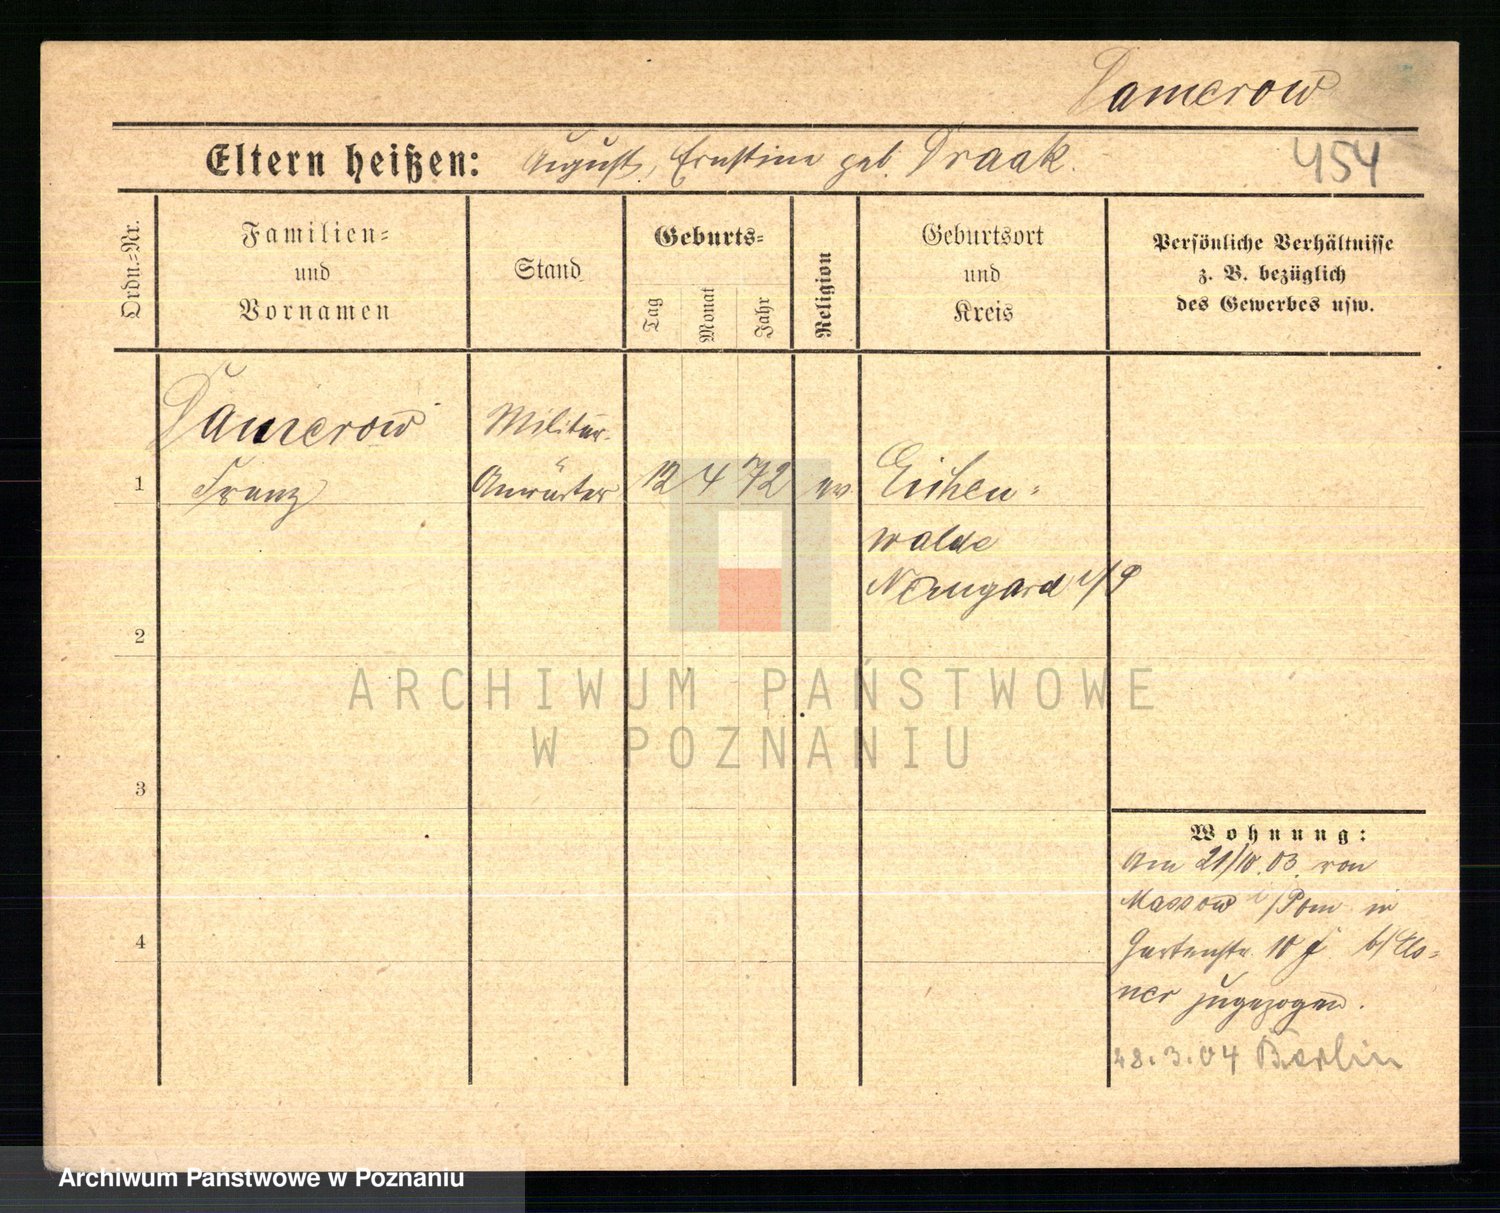 Damerow
Eltern heißen: August, Ernstine geb. Draak.
454
Ordn.-Nr.
Familien-
und
Vornamen
Stand
Geburts-
Tag
Monat
Jahr
Religion
Geburtsort
und
Kreis
Persönliche Verhältnisse
z. B. bezüglich
des Gewerbes usw.
1
Damerow
Franz
Militär-
Anwärter
12 4 72
ev
Eichen-
walde
Naugard i/P
2
3
4
Wohnung:
Am 21/10.03. von
Massow i/Pom in
Gartenstr. 10 b/Els-
ner zugezogen.
28.3.04 Berlin
ARCHIWUM PAŃSTWOWE
W POZNANIU
Archiwum Państwowe w Poznaniu